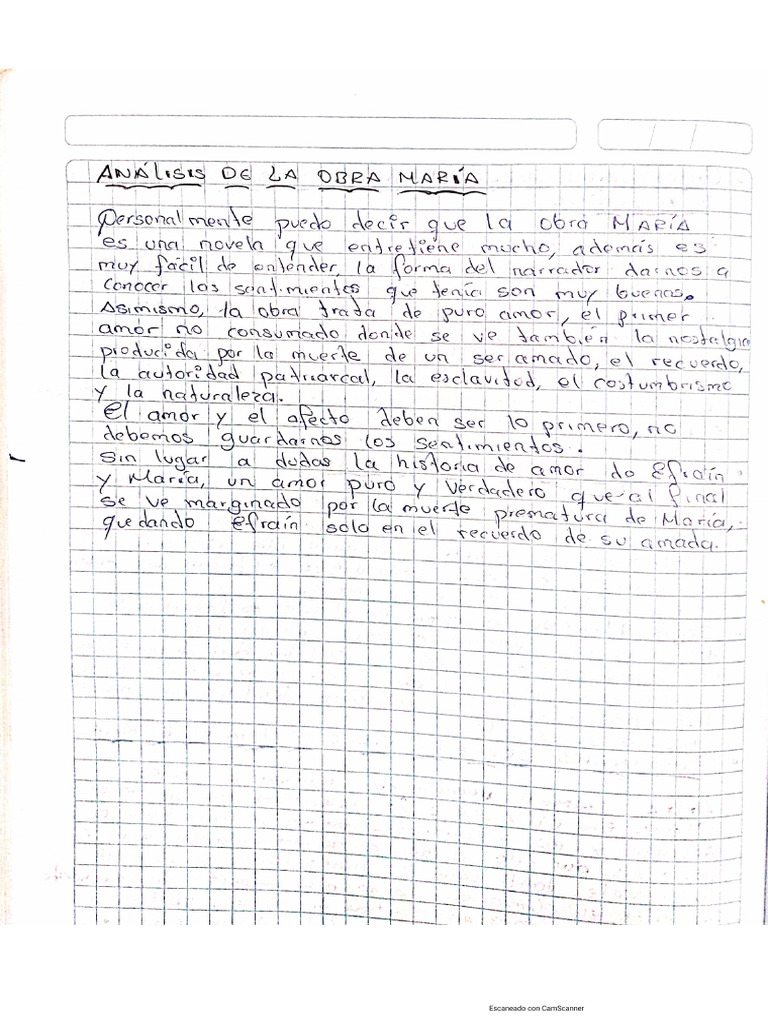 ANÁLISIS DE LA OBRA MARÍA
Personalmente puedo decir que la obra MARÍA
es una novela que entretiene mucho, además es
muy fácil de entender, la forma del narrador darnos a
conocer los sentimientos que tenía son muy buenas.
Asimismo, la obra trata de puro amor, el primer
amor no consumado donde se ve también la nostalgia
producida por la muerte de un ser amado, el recuerdo,
la autoridad patriarcal, la esclavitud, el costumbrismo
y la naturaleza.
El amor y el afecto deben ser lo primero, no
debemos guardarnos los sentimientos.
Sin lugar a dudas la historia de amor de Efraín
y María, un amor puro y verdadero que al final
se ve marginado por la muerte prematura de María,
quedando Efraín solo en el recuerdo de su amada.
Escaneado con CamScanner